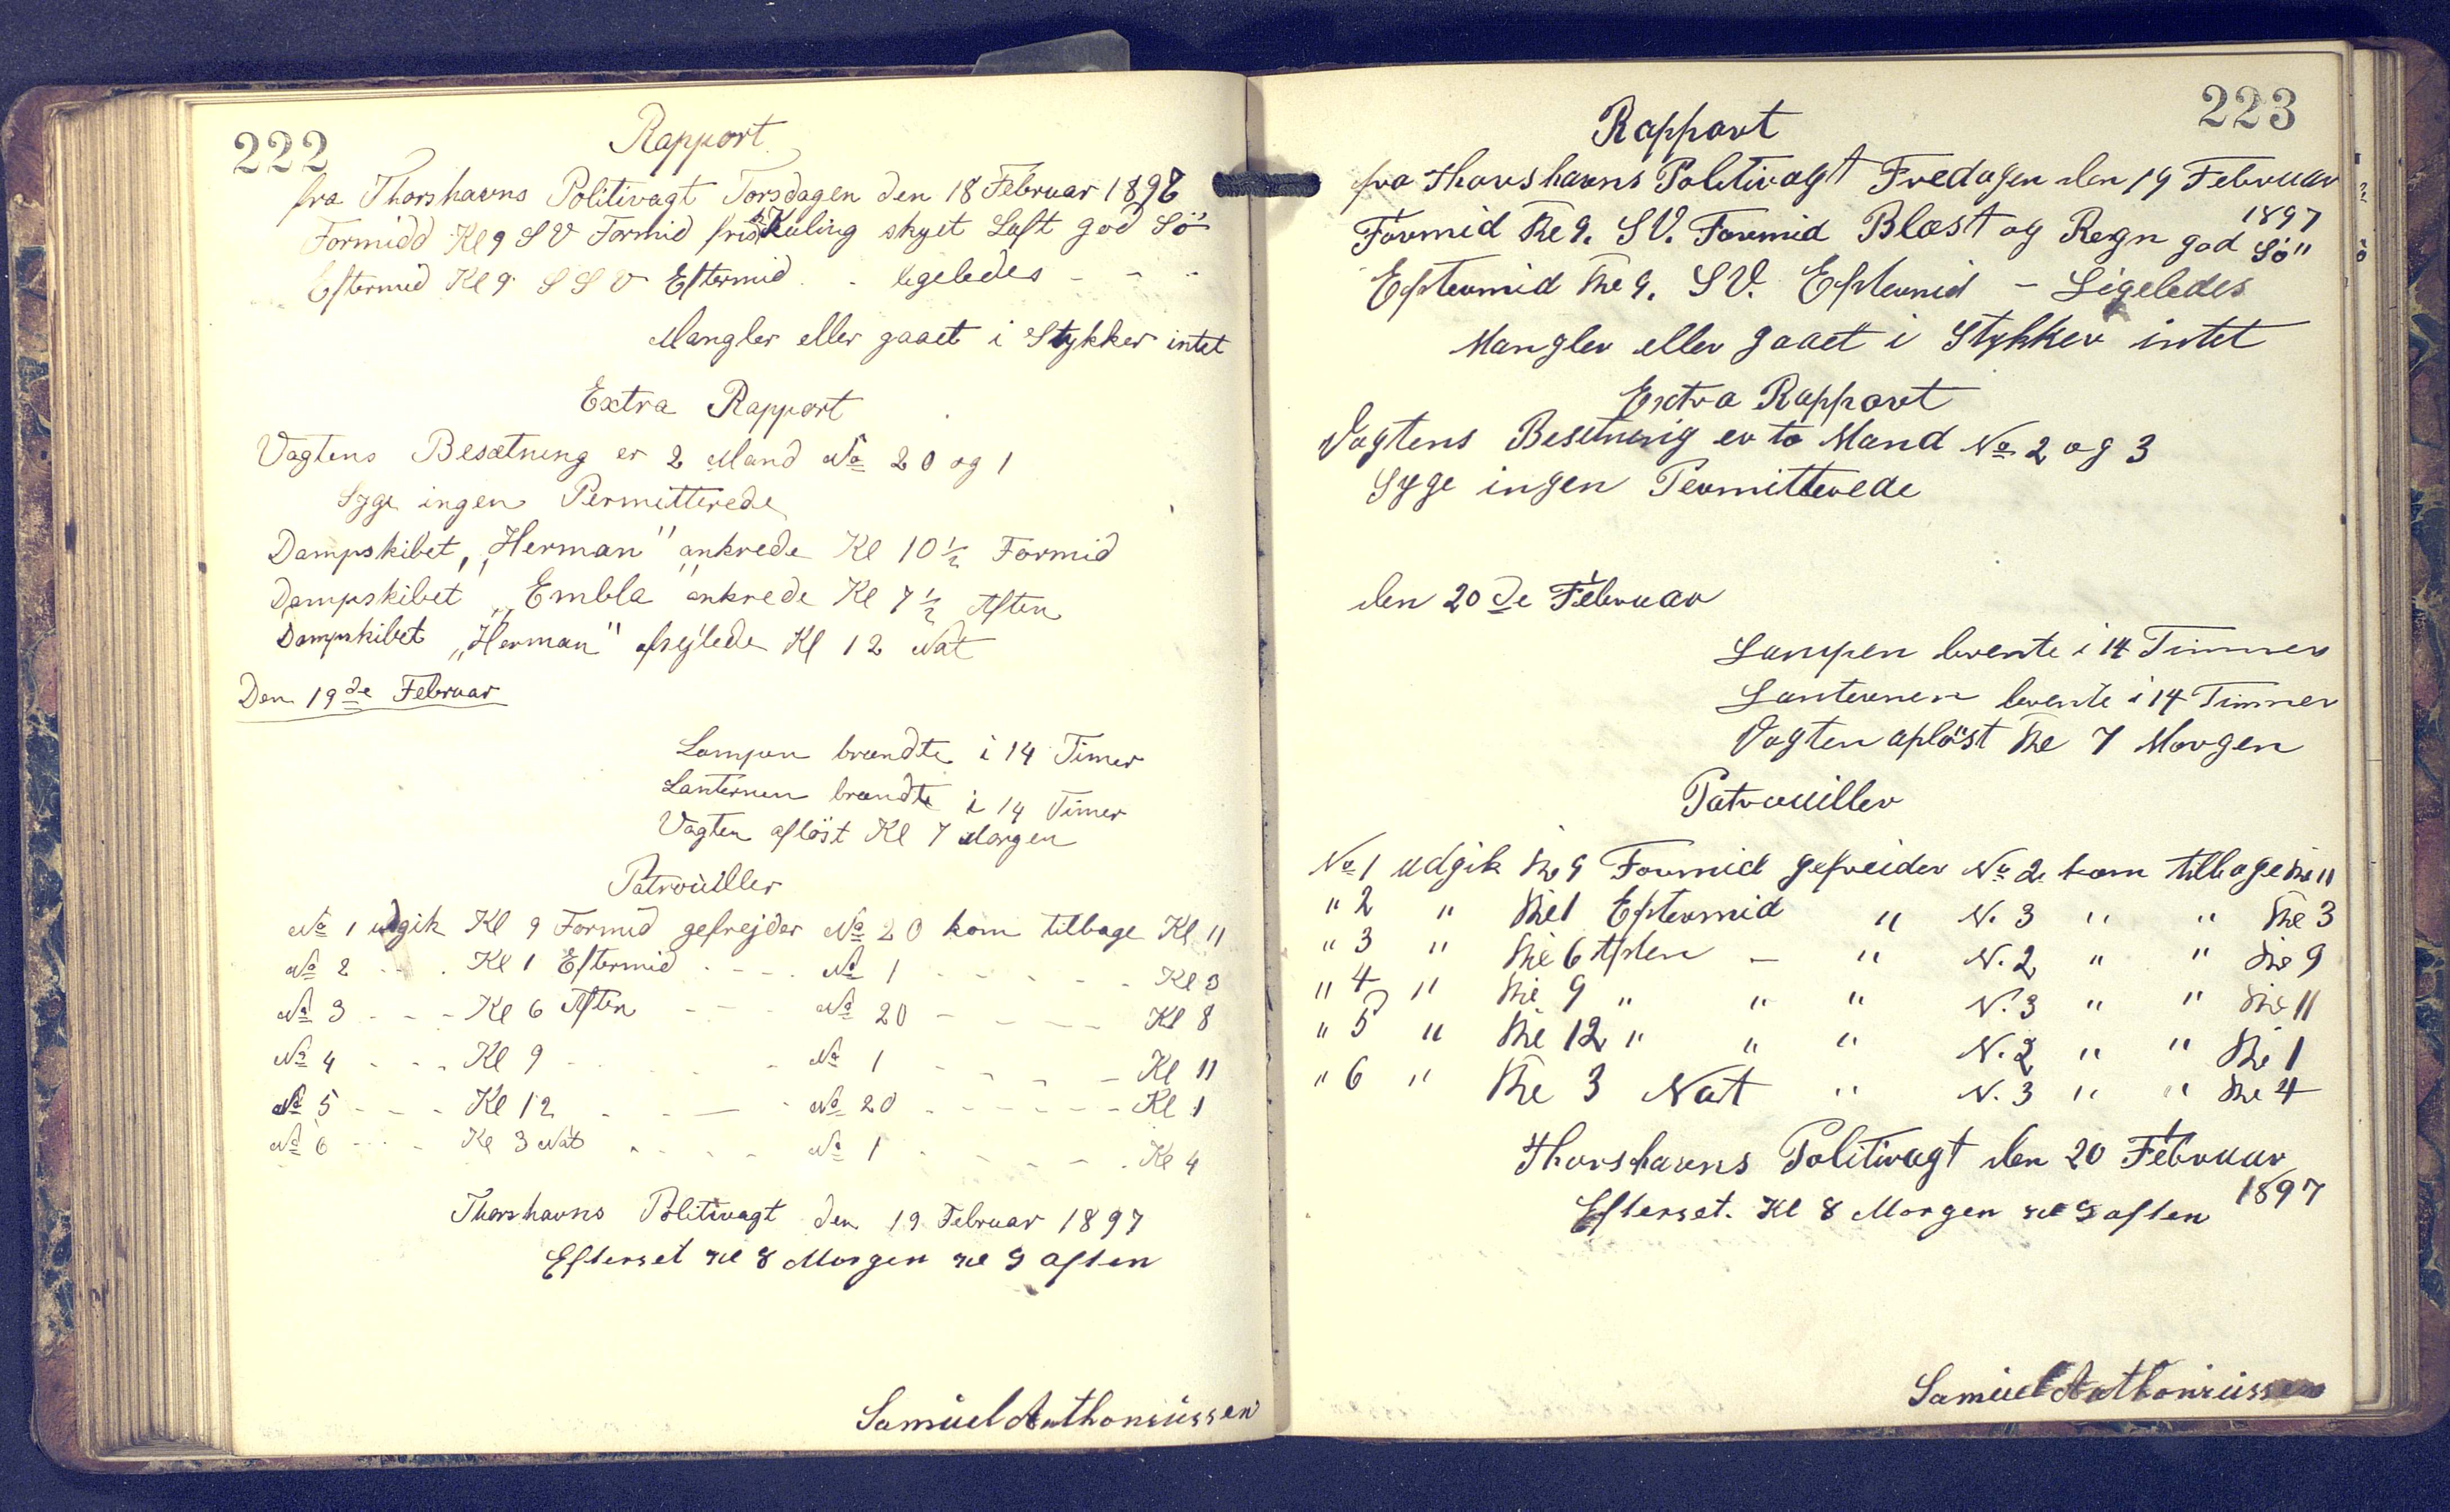 222
Rapport
fra Thorshavns Politivagt Torsdagen den 18 Februar 1897
Formidd Kl 9 S V Formid frisk Kuling skyet Luft god Sö
Eftermid Kl 9 S S V Eftermid - ligeledes - - -
Mangler eller gaaet i Stykker intet
Extra Rapport
Vagtens Besætning er 2 Mand No 20 og 1
Syge ingen Permitterede
Dampskibet „Herman" ankrede Kl 10 1/2 Formid
Dampskibet „Embla" ankrede Kl 7 1/2 Aften
Dampskibet „Herman" afsejlede Kl 12 Nat
Den 19de Februar
Lampen brændte i 14 Timer
Lanternen brændte i 14 Timer
Vagten aflöst Kl 7 Morgen
Patrouiller
No 1 udgik Kl 9 Formid gefrejder No 20 kom tilbage Kl 11
No 2 - - - Kl 1 Eftermid - - - No 1 - - - - - Kl 3
No 3 - - - Kl 6 Aften - - - No 20 - - - - Kl 8
No 4 - - - Kl 9 - - - - No 1 - - - - Kl 11
No 5 - - - Kl 12 - - - - No 20 - - - - - Kl 1
No 6 - - - Kl 3 Nat - - - - No 1 - - - - Kl 4
Thorshavns Politivagt den 19 Februar 1897
Efterset Kl 8 Morgen Kl 9 aften
Samüel Anthoniüssen
223
Rapport
fra Thorshavns Politivagt Fredagen den 19 Februar
1897
Formid Kl 9. S V. Formid Blæst og Regn god Sö"
Eftermid Kl 9. S V. Eftermid - Ligeledes
Mangler eller gaaet i Stykker intet
Extra Rapport
Vagtens Besetning er to Mand No 2 og 3
Syge ingen Permitterede
den 20de Februar
Lampen brente i 14 Timmer
Lanternen brente i 14 Timmer
Vagten aflöst Kl 7 Morgen
Patrouiller
No 1 udgik Kl 9 Formid gefreider No 2 kom tilbage Kl 11
" 2 " Kl 1 Eftermid " N. 3 " " Kl 3
" 3 " Kl 6 Aften - " N. 2 " " Kl 9
" 4 " Kl 9 " " " N. 3 " " Kl 11
" 5 " Kl 12 " " " N. 2 " " Kl 1
" 6 " Kl 3 Nat " N. 3 " " Kl 4
Thorshavns Politivagt den 20 Februar
1897
Efterset. Kl 8 Morgen Kl 9 aften
Samüel Anthoniüssen